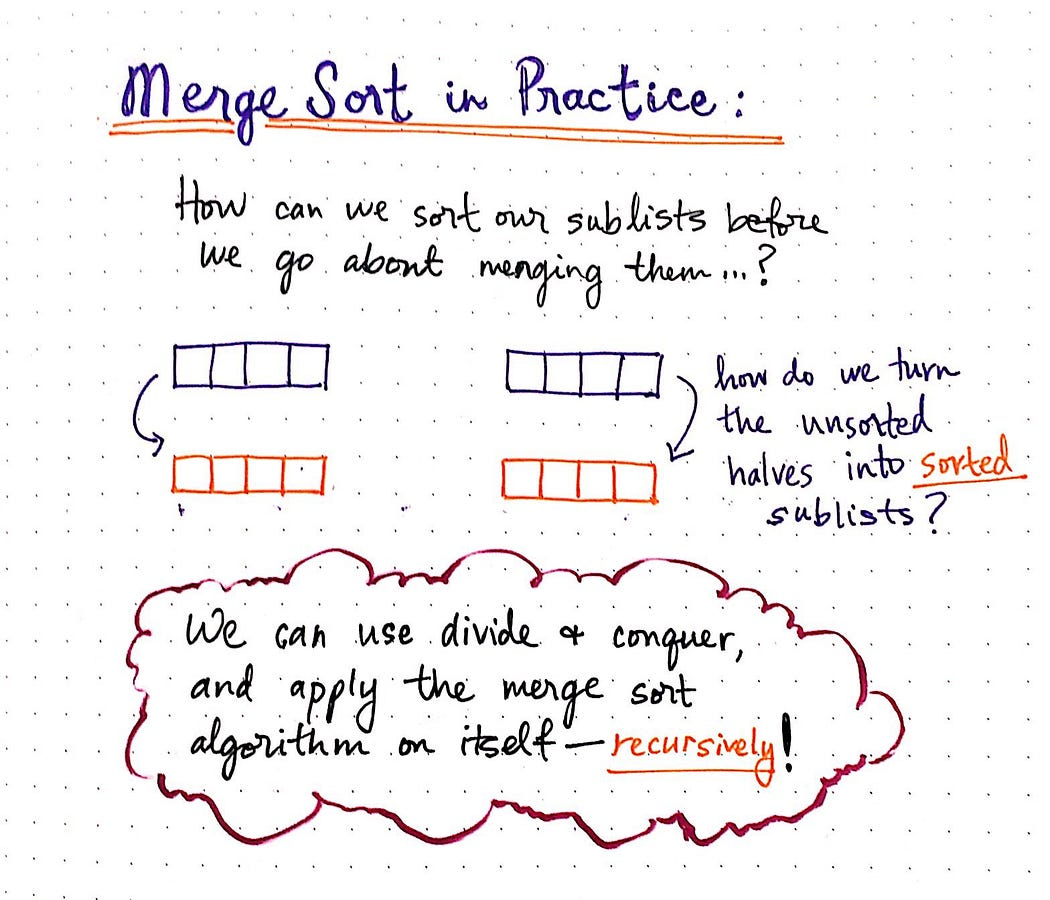 Merge Sort in Practice:
How can we sort our sublists before
we go about merging them...?
how do we turn
the unsorted
halves into sorted
sublists?
We can use divide & conquer,
and apply the merge sort
algorithm on itself — recursively!